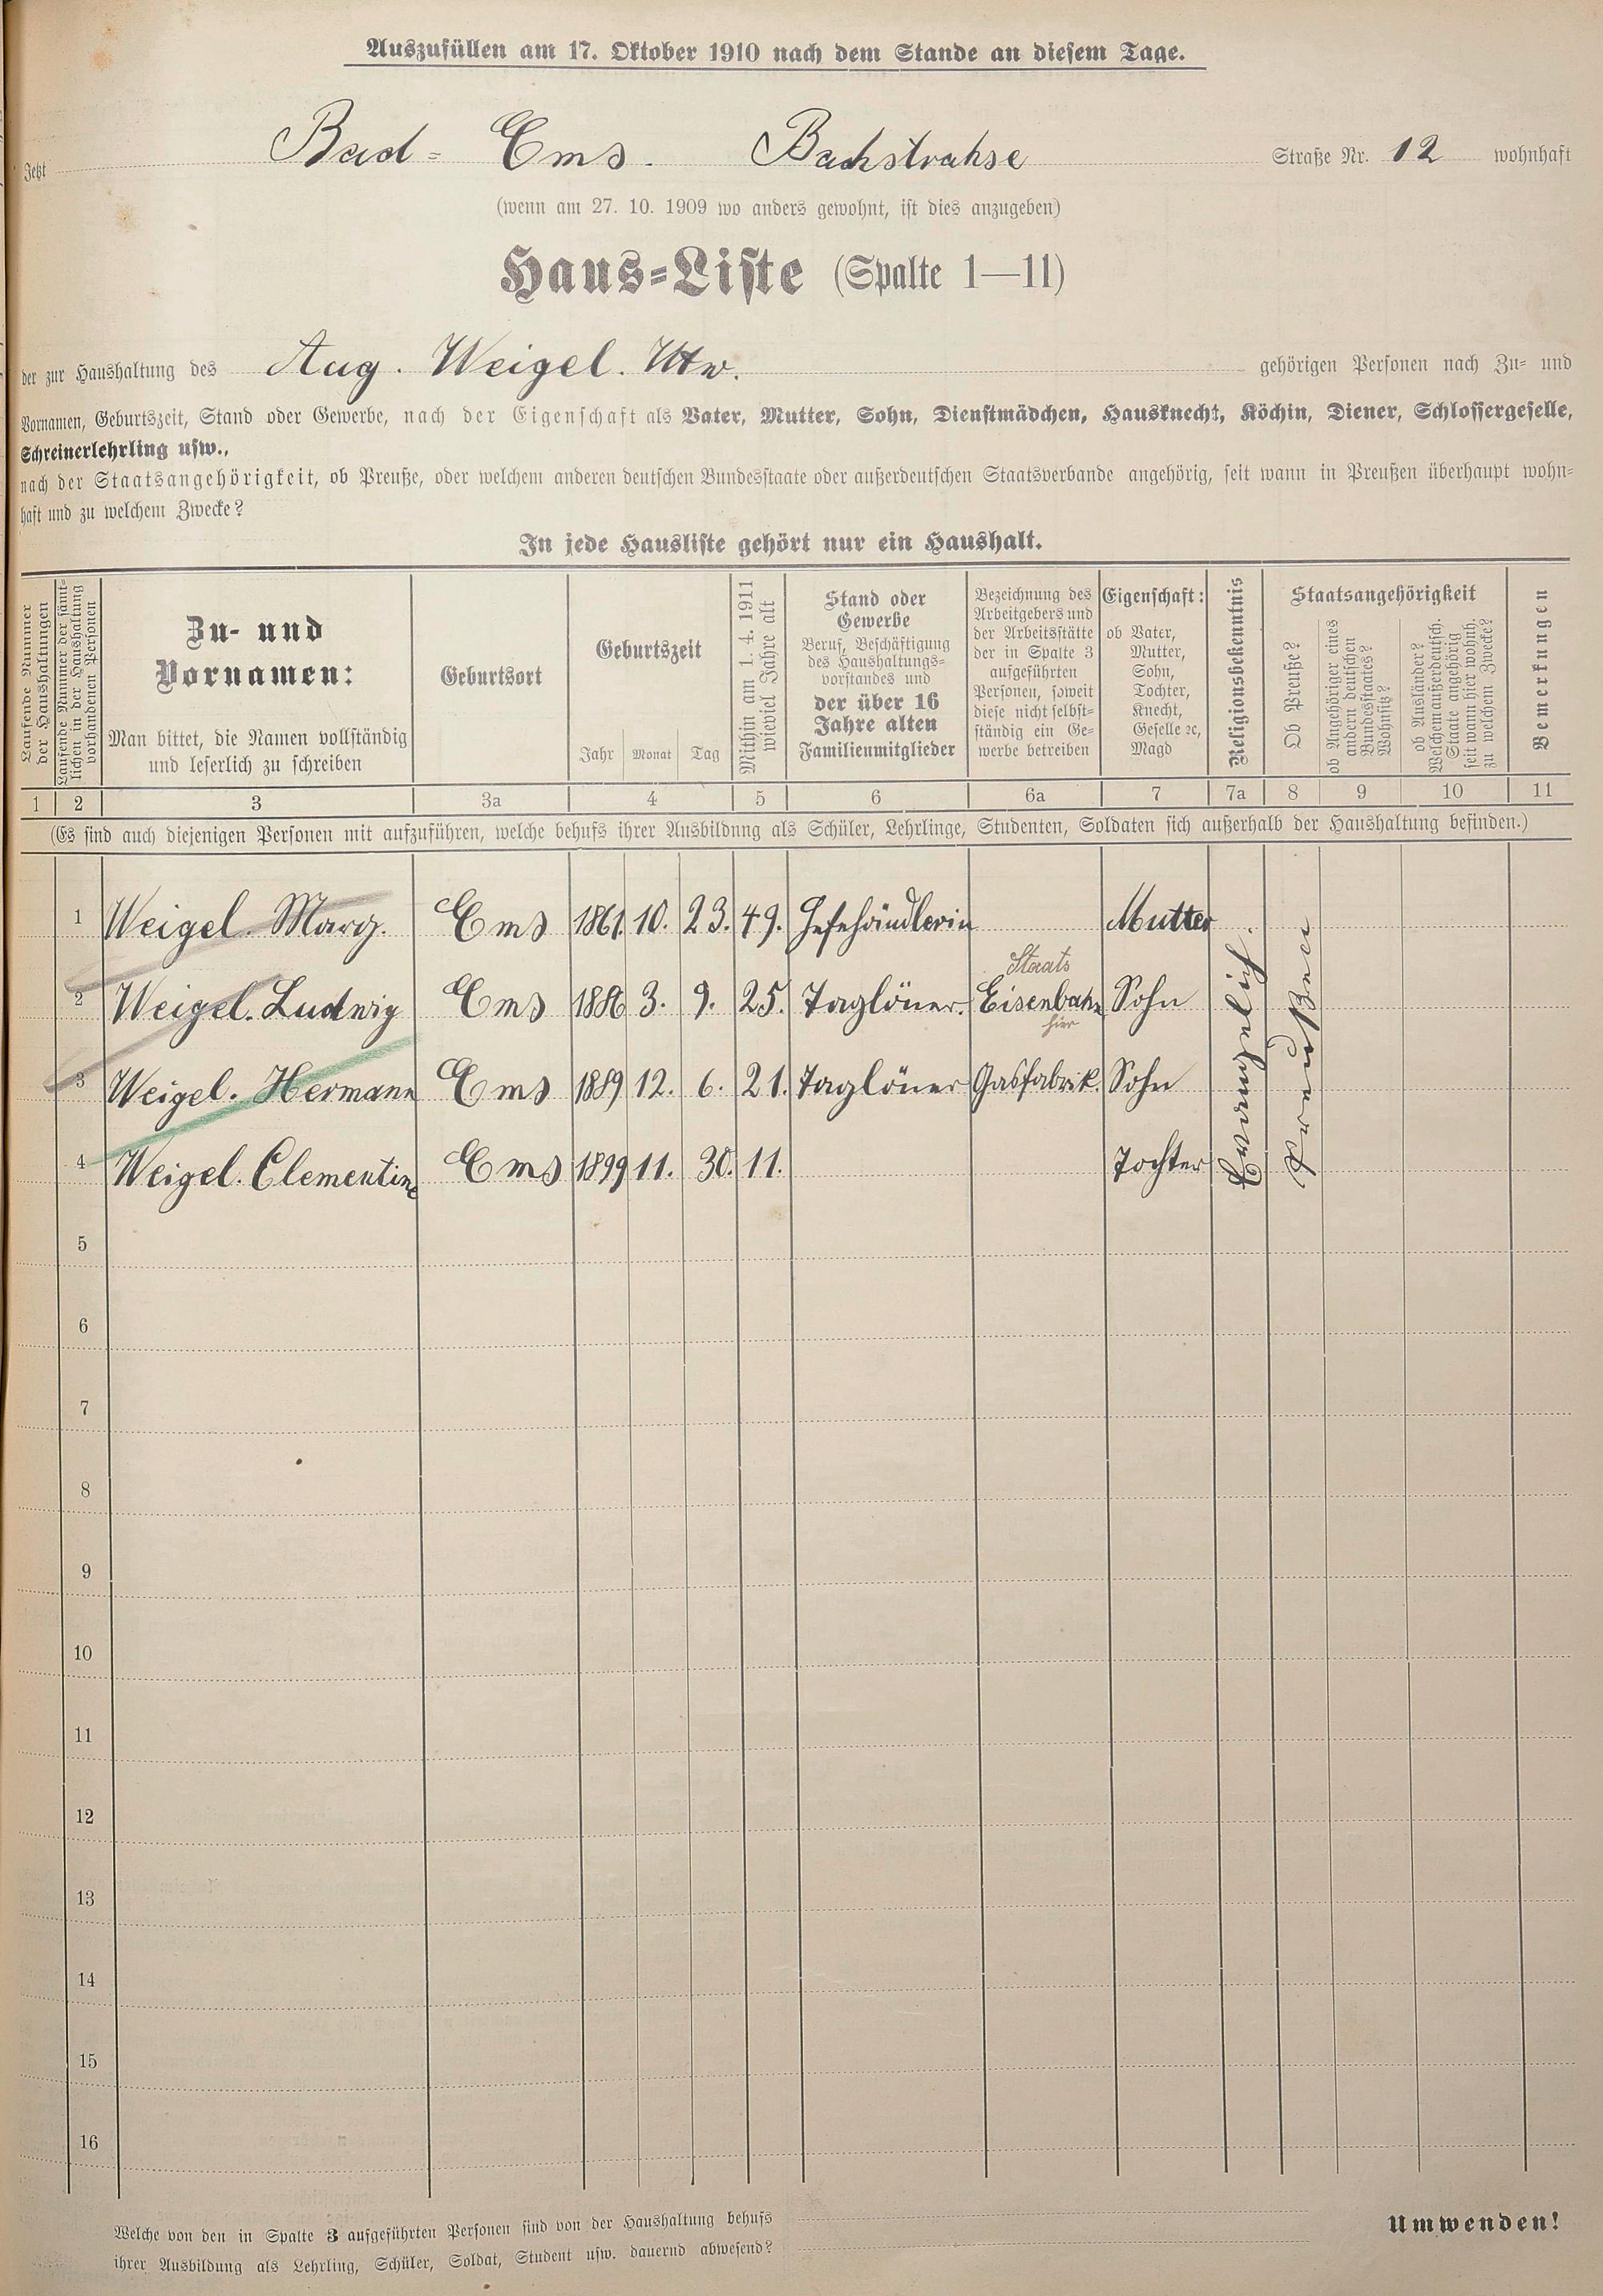 Auszufüllen am 17. Oktober 1910 nach dem Stande an diesem Tage.
Jetzt Bad-Ems. Bachstrahse Straße Nr. 12 wohnhaft
(wenn am 27. 10. 1909 wo anders gewohnt, ist dies anzugeben)
Haus-Liste (Spalte 1—11)
der zur Haushaltung des Aug. Weigel. Wtw. gehörigen Personen nach Zu- und
Vornamen, Geburtszeit, Stand oder Gewerbe, nach der Eigenschaft als Vater, Mutter, Sohn, Dienstmädchen, Hausknecht, Köchin, Diener, Schlossergeselle,
Schreinerlehrling usw.,
nach der Staatsangehörigkeit, ob Preuße, oder welchem anderen deutschen Bundesstaate oder außerdeutschen Staatsverbande angehörig, seit wann in Preußen überhaupt wohn-
haft und zu welchem Zwecke?
In jede Hausliste gehört nur ein Haushalt.
Laufende Nummer
der Haushaltungen
Laufende Nummer der sämt-
lichen in der Haushaltung
vorhandenen Personen
Zu- und
Vornamen:
Man bittet, die Namen vollständig
und leserlich zu schreiben
Geburtsort
Geburtszeit
Jahr Monat Tag
Mithin am 1. 4. 1911
wieviel Jahre alt
Stand oder
Gewerbe
Beruf, Beschäftigung
des Haushaltungs-
vorstandes und
der über 16
Jahre alten
Familienmitglieder
Bezeichnung des
Arbeitgebers und
der Arbeitsstätte
der in Spalte 3
aufgeführten
Personen, soweit
diese nicht selbst-
ständig ein Ge-
werbe betreiben
Eigenschaft:
ob Vater,
Mutter,
Sohn,
Tochter,
Knecht,
Geselle ꝛc,
Magd
Religionsbekenntnis
Staatsangehörigkeit
Ob Preuße?
ob Angehöriger eines
andern deutschen
Bundesstaates?
Wohnsitz?
ob Ausländer?
Welchem außerdeutsch.
Staate angehörig
seit wann hier wohnh.
zu welchem Zwecke?
Bemerkungen
1 2 3 3a 4 5 6 6a 7 7a 8 9 10 11
(Es sind auch diejenigen Personen mit aufzuführen, welche behufs ihrer Ausbildung als Schüler, Lehrlinge, Studenten, Soldaten sich außerhalb der Haushaltung befinden.)
1 Weigel. Marg. Ems 1861. 10. 23. 49. Hefehändlerin Mutter
Staats
2 Weigel. Ludwig Ems 1886 3. 9. 25. Taglöner. Eisenbahn Sohn
hier
3 Weigel. Hermann Ems 1889 12. 6. 21. Taglöner Gasfabrik. Sohn
4 Weigel. Clementine Ems 1899 11. 30. 11. Tochter
Evangelich.
Preußen
5
6
7
8
9
10
11
12
13
14
15
16
Welche von den in Spalte 3 aufgeführten Personen sind von der Haushaltung behufs
ihrer Ausbildung als Lehrling, Schüler, Soldat, Student usw. dauernd abwesend?
Umwenden!